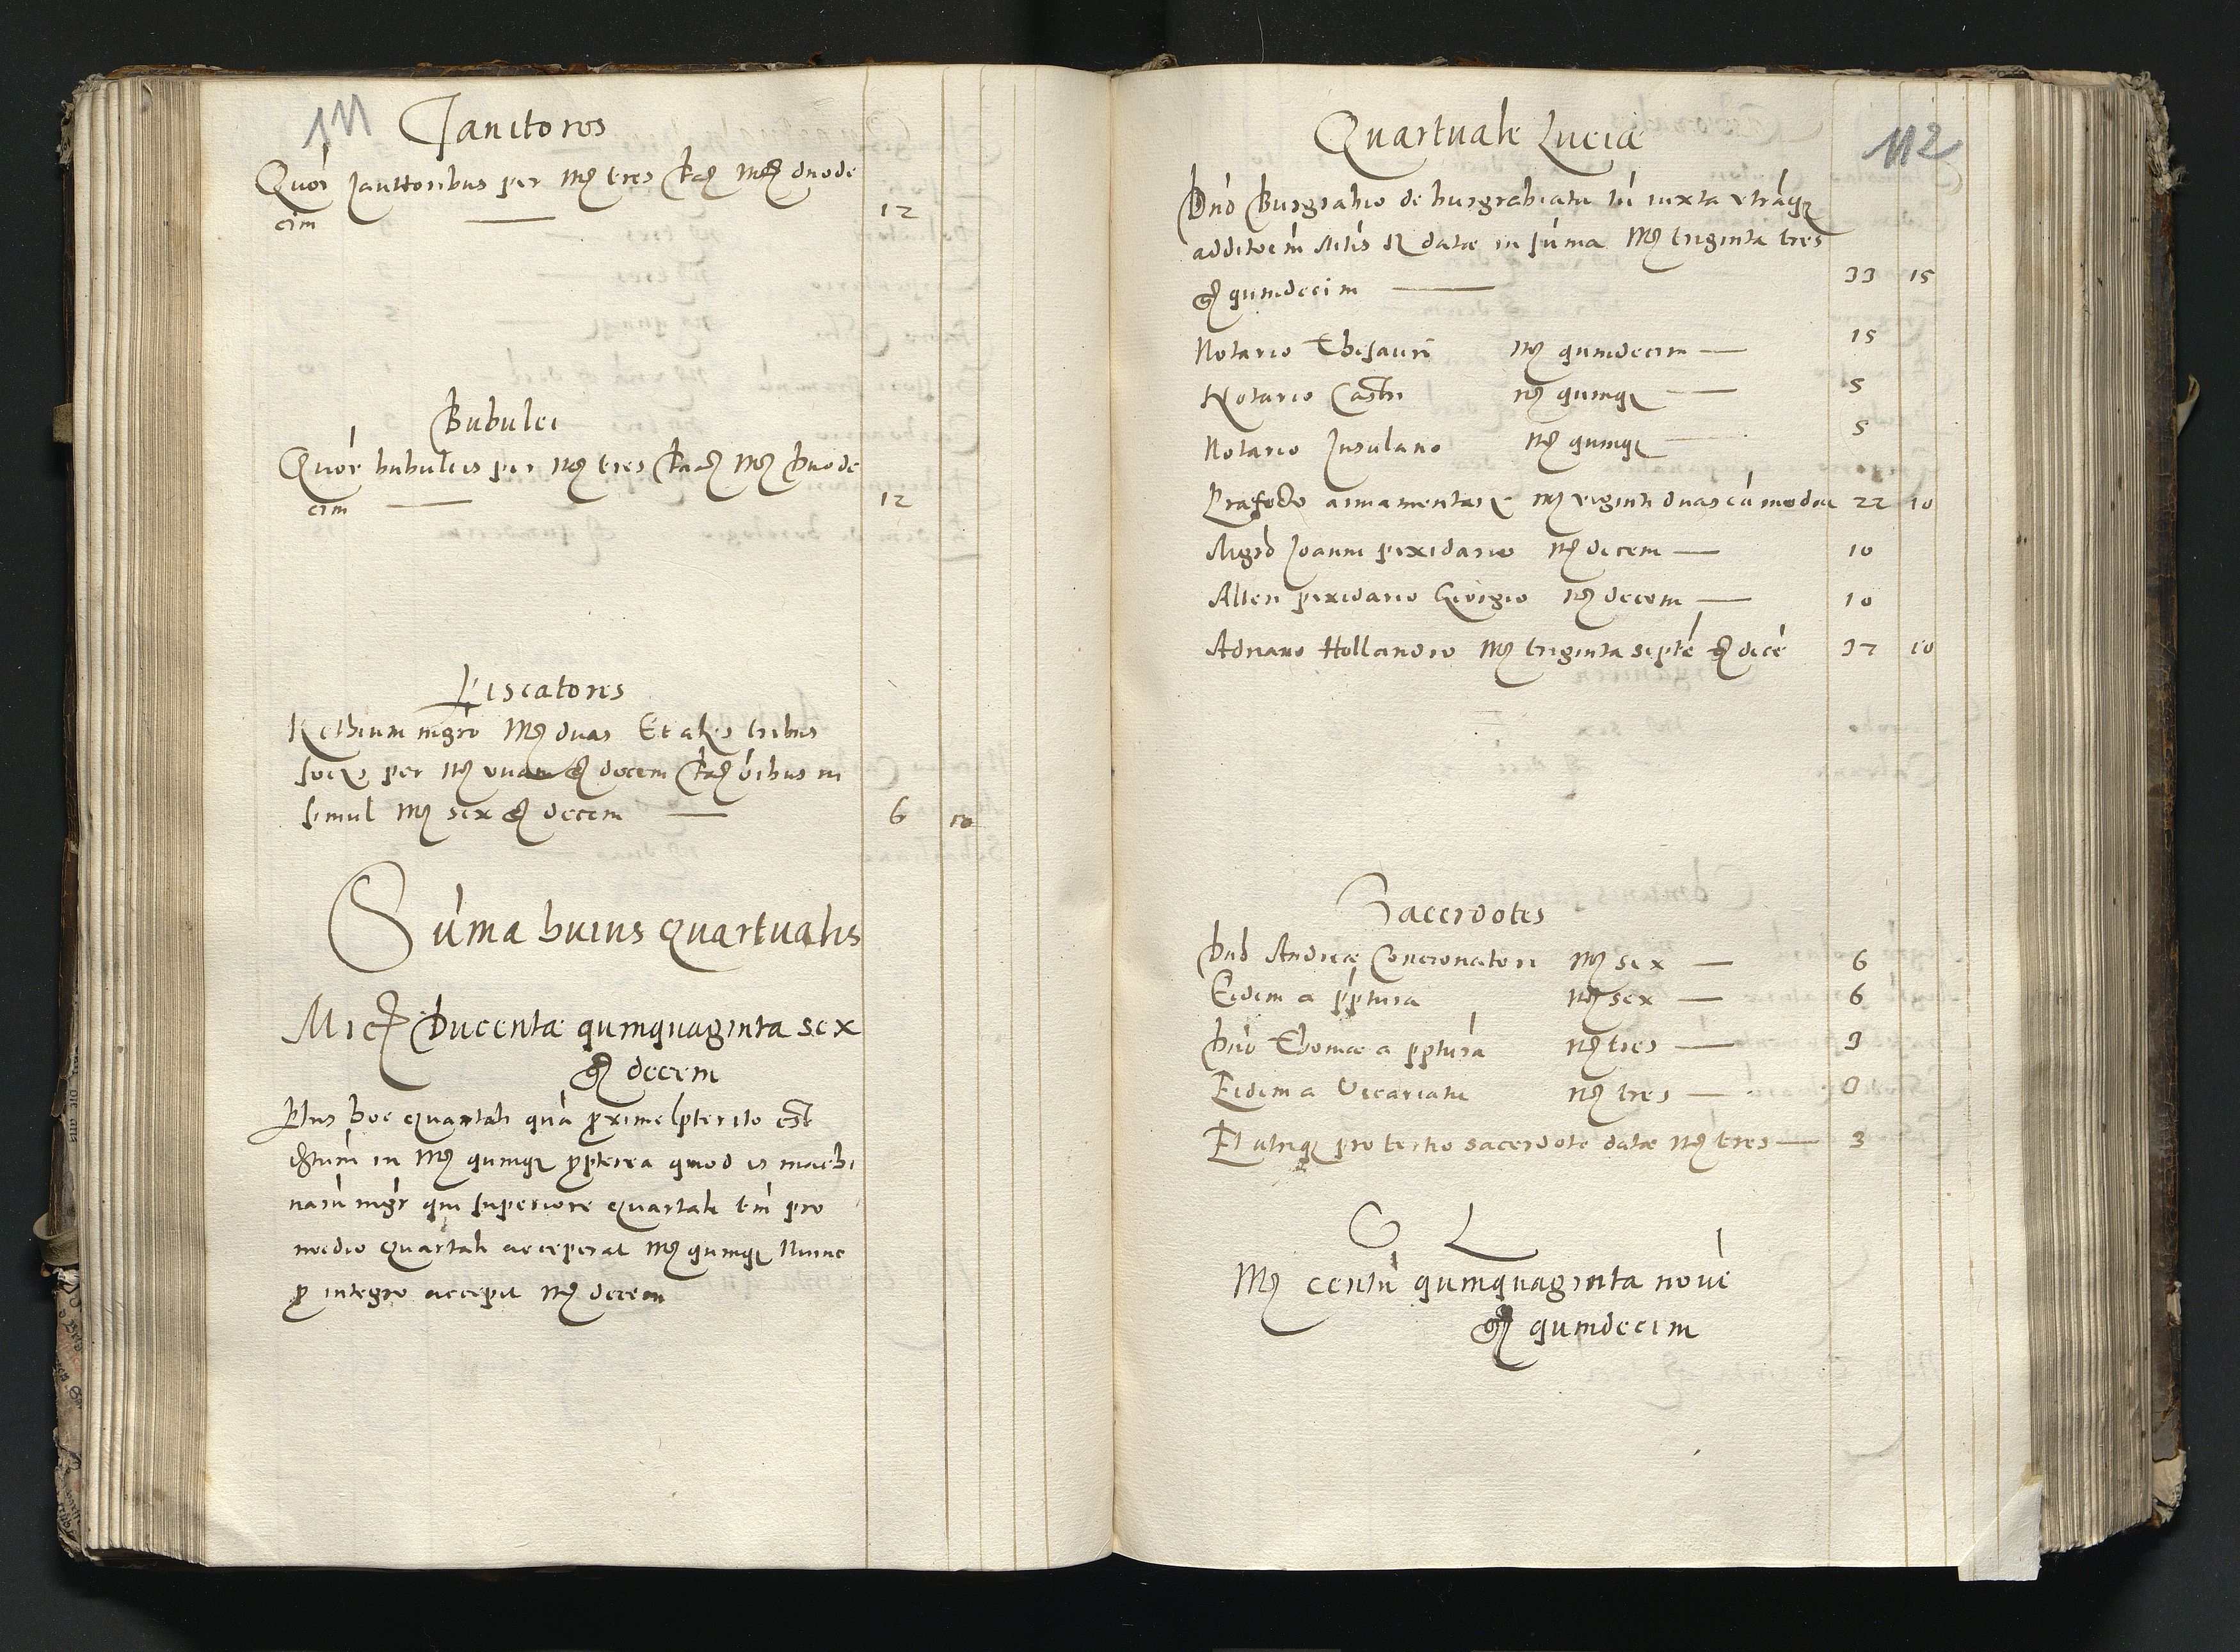 111
Janitores
Quor Janitoribus per Mc tres fac Mc duode
cim —— 12
Bubulci
Quor bubulcis per Mc tres facit Mc duode
cim —— 12
Piscatores
Rethium mgro Mc duas Et aliis tribus
sociis per Mc unam g decem fac oibus in
simul Mc sex g decem —— 6 10
Suma huius quartualis
Mrc Ducentæ quinquaginta sex
g decem
Plus hoc quartali qua proxime pterito est
in Mc quinque ppterea quod is machi
naru mgr qui superiore quartali tm pro
medio quartali acceperat Mc quinque Nunc
p integro accepit Mc decem
112
Quartuale Luciæ
Dno Burgrabio de burgrabiatu iuxta utraque
additoem datæ in suma Mc triginta tres
g quindecim —— 33 15
Notario Thesauri Mc quindecim — 15
Notario Castri Mc quinque — 5
Notario Insulano Mc quinque — 5
Præfecto armamentarii Mc viginti duas cu media 22 10
Mgro Joanni pixidario Mc decem — 10
Alteri pixidario Georgio Mc decem — 10
Adriano Hollandro Mc triginta septe g dece 37 10
Sacerdotes
Dno Andreæ Concionatori Mc sex — 6
Eidem a pptura Mc sex — 6
Dno Thomæ a pptura Mc tres — 3
Eidem a Vicariatu Mc tres — 0
Et utrique pro tertio sacerdote datæ Mc tres — 3
S L
Mc centu quinquaginta nove
g quindecim